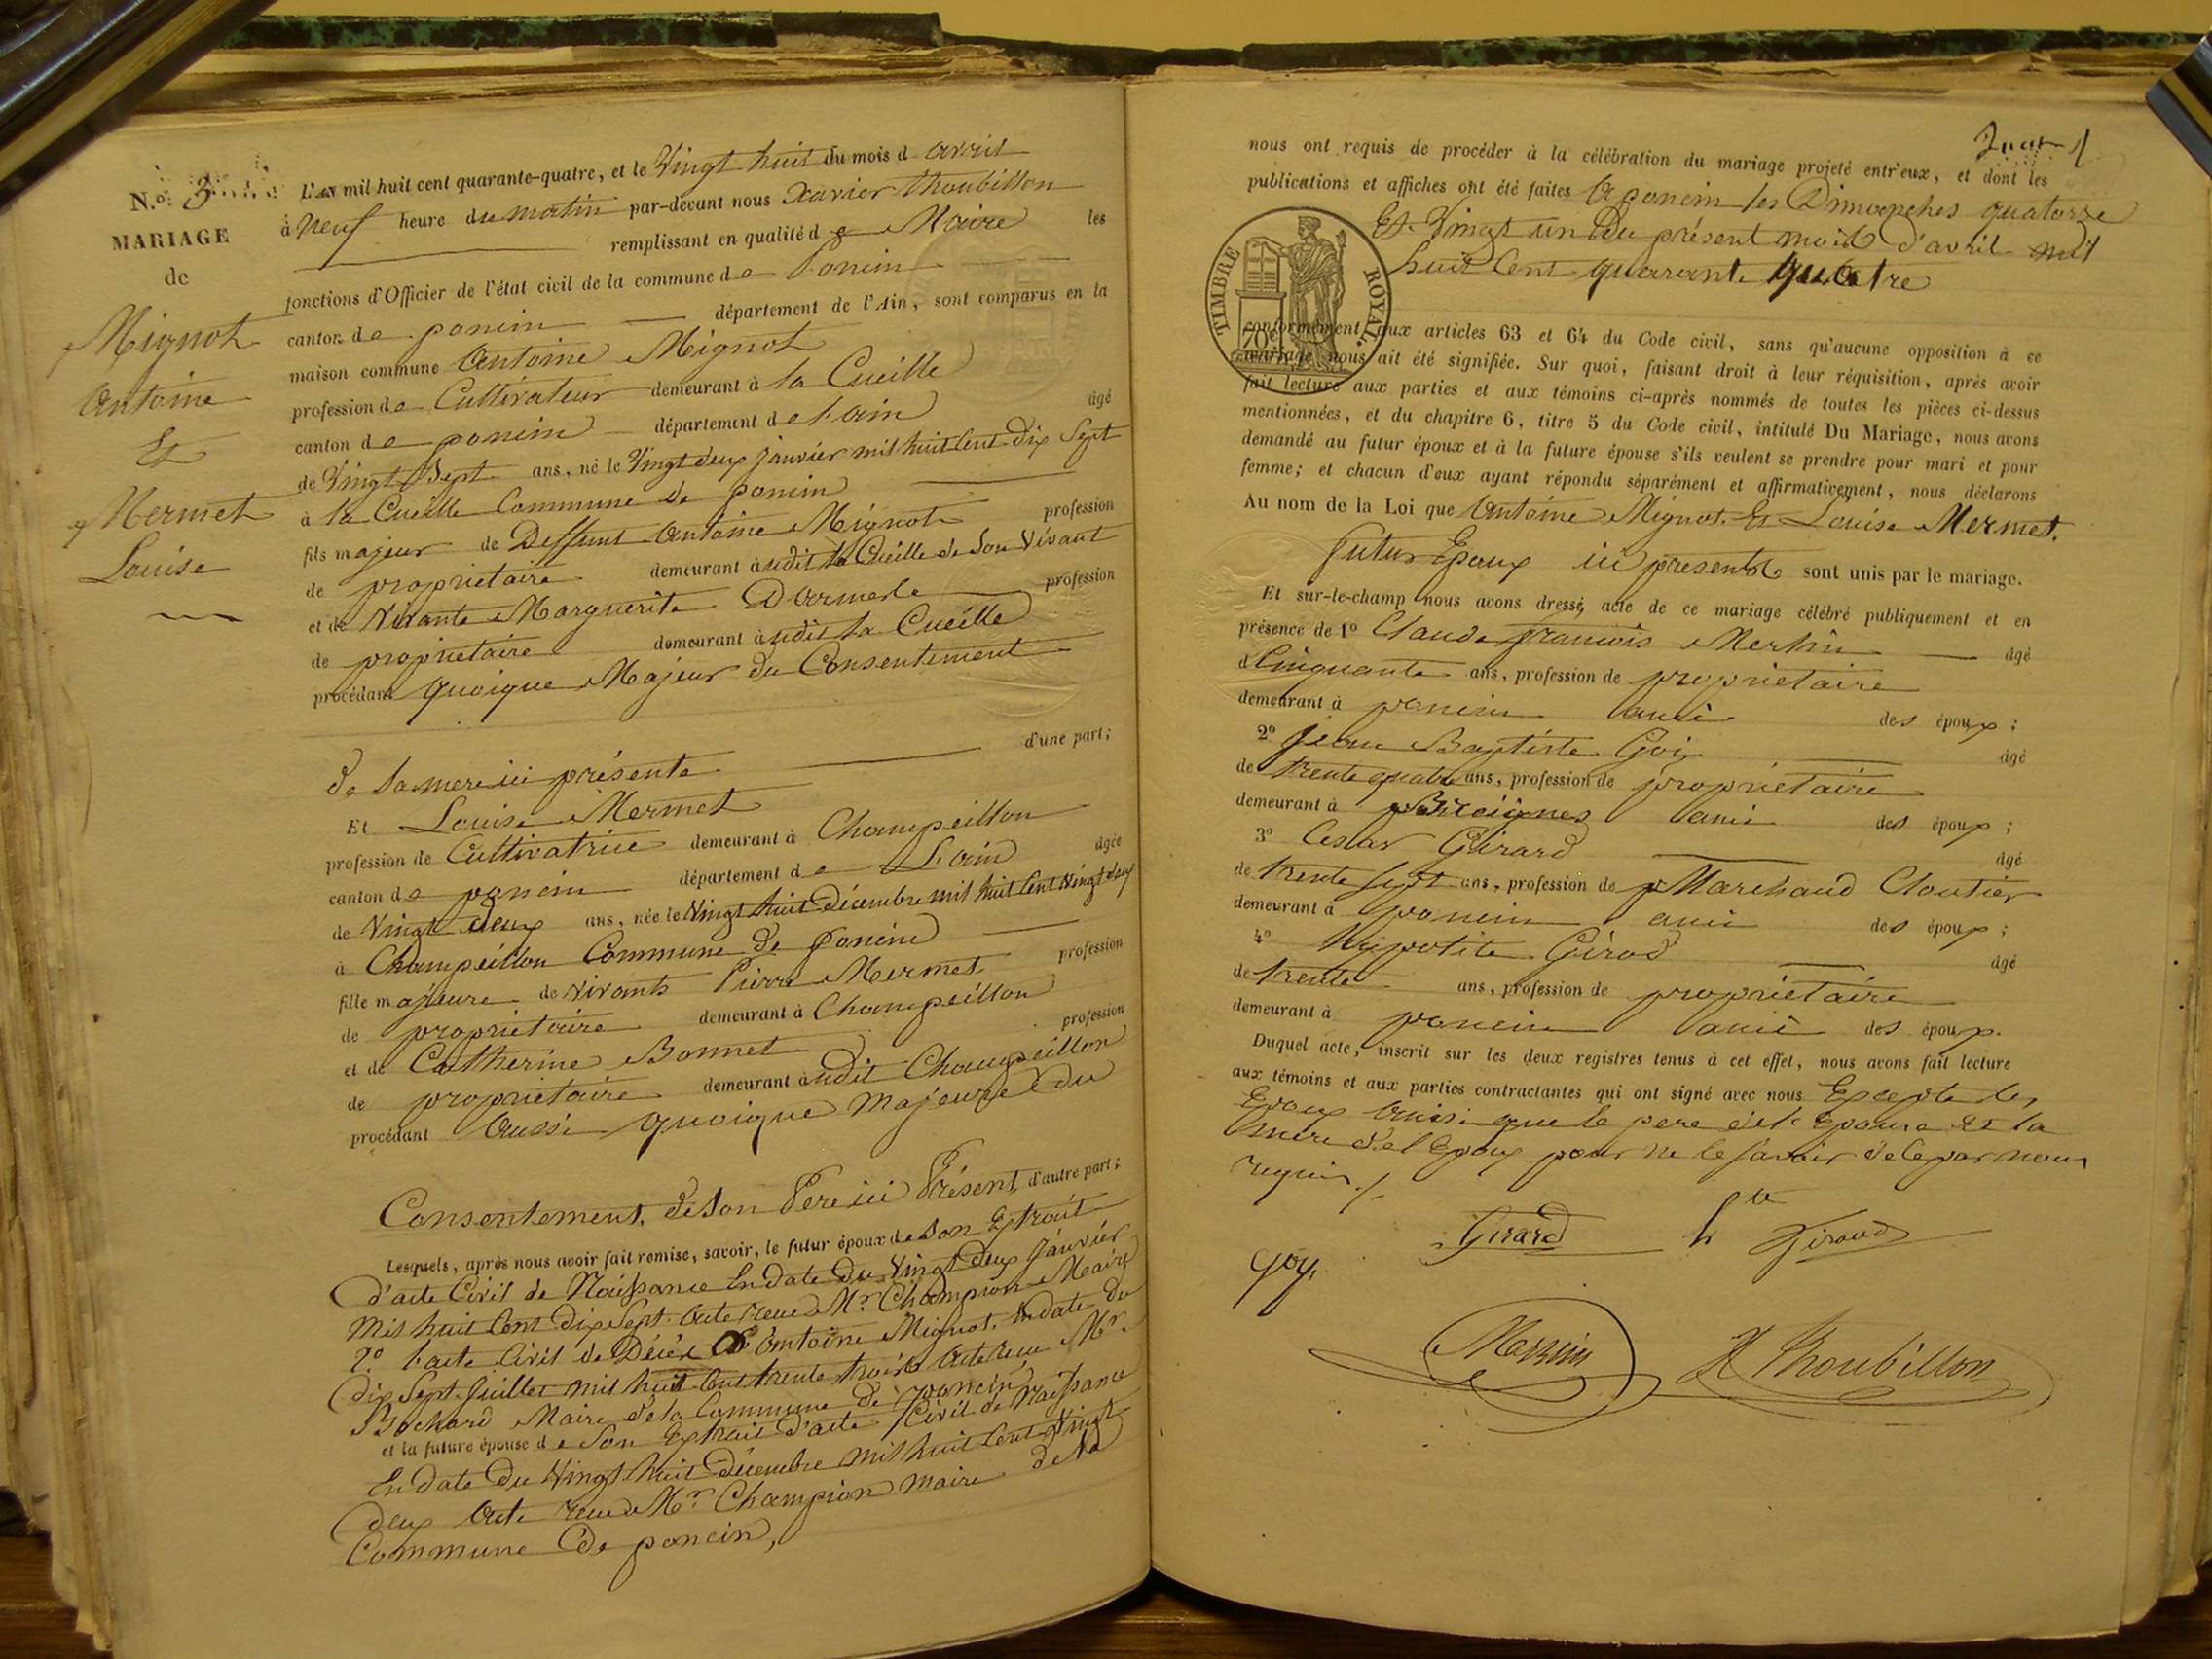 N.o 3
MARIAGE
de
Mignot
Antoine
Et
Mermet
Louise
L'AN mil huit cent quarante-quatre, et le Vingt huit du mois d avril
à Neuf heure du matin par-devant nous Xavier Thoubillon
remplissant en qualité de Maire les
fonctions d'Officier de l'état civil de la commune de Poncin
canton de poncin département de l'Ain, sont comparus en la
maison commune Antoine Mignot
profession de Cultivateur demeurant à la Cueille
canton de poncin département de l'ain âgé
de Vingt Sept ans, né le Vingt deux janvier mil huit Cent Dix Sept
à la Cueille Commune de poncin
fils majeur de Deffunt Antoine Mignot profession
de propriétaire demeurant audit la Cueille de Son Vivant
et de Vivante Marguerite profession
de propriétaire demeurant audit la Cueille
procédant quoique Majeur du Consentement
de Sa mere ici présente d'une part;
Et Louise Mermet
profession de Cultivatrice demeurant à Champeillon
canton de poncin département de L'ain âgée
de Vingt deux ans, née le Vingt huit Décembre mil huit Cent Vingt deux
à Champeillon Commune de Poncin
fille majeure de Vivants Pierre Mermet profession
de propriétaire demeurant à Champeillon
et de Catherine Bonnet profession
de propriétaire demeurant audit Champeillon
procédant Aussi quoique majeure du
Consentement de Son Pere ici Présent d'autre part;
Lesquels, après nous avoir fait remise, savoir, le futur époux de Son Extrait
d'acte Civil de Naissance En date du Vingt deux Janvier
Mil huit Cent Dix Sept. Acte recu Mr. Champion Maire
2.o l'acte Civil de Décès d'Antoine Mignot. En date du
Dix Sept Juillet mil huit Cent trente trois Acte recu Mr.
Bochard Maire de la Commune de poncin
et la future épouse de Son Extrait d'acte Civil de Naissance
En date du Vingt huit Décembre mil huit Cent Vingt
deux Acte recu Mr. Champion maire de la
Commune de poncin,
nous ont requis de procéder à la célébration du mariage projeté entr'eux, et dont les
publications et affiches ont été faites A poncin les Dimanches quatorze
Et Vingt un du présent mois d'avril mil
huit Cent quarante quatre
TIMBRE ROYAL.
70c
conformément aux articles 63 et 64 du Code civil, sans qu'aucune opposition à ce
mariage nous ait été signifiée. Sur quoi, faisant droit à leur réquisition, après avoir
fait lecture aux parties et aux témoins ci-après nommés de toutes les pièces ci-dessus
mentionnées, et du chapitre 6, titre 5 du Code civil, intitulé Du Mariage, nous avons
demandé au futur époux et à la future épouse s'ils veulent se prendre pour mari et pour
femme; et chacun d'eux ayant répondu séparément et affirmativement, nous déclarons
Au nom de la Loi que Antoine Mignot. Et Louise Mermet.
futur Epoux ici présents sont unis par le mariage.
Et sur-le-champ nous avons dressé acte de ce mariage célébré publiquement et en
présence de 1o Claude francois âgé
d Cinquante ans, profession de propriétaire
demeurant à poncin ami des époux;
2o Jean Baptiste Goy âgé
de trente quatre ans, profession de propriétaire
demeurant à ami des époux;
3o Cesar Girard âgé
de trente sept ans, profession de Marchand Cloutier
demeurant à poncin ami des époux;
4o hypolite Girod âgé
de trente ans, profession de propriétaire
demeurant à poncin ami des époux.
Duquel acte, inscrit sur les deux registres tenus à cet effet, nous avons fait lecture
aux témoins et aux parties contractantes qui ont signé avec nous Excepte les
Epoux Ainsi que le pere de l'Epouse Et la
mere de l'Epoux pour ne le Savoir de ce par nous
requis ./.
Girard
Goy
X Thoubillon